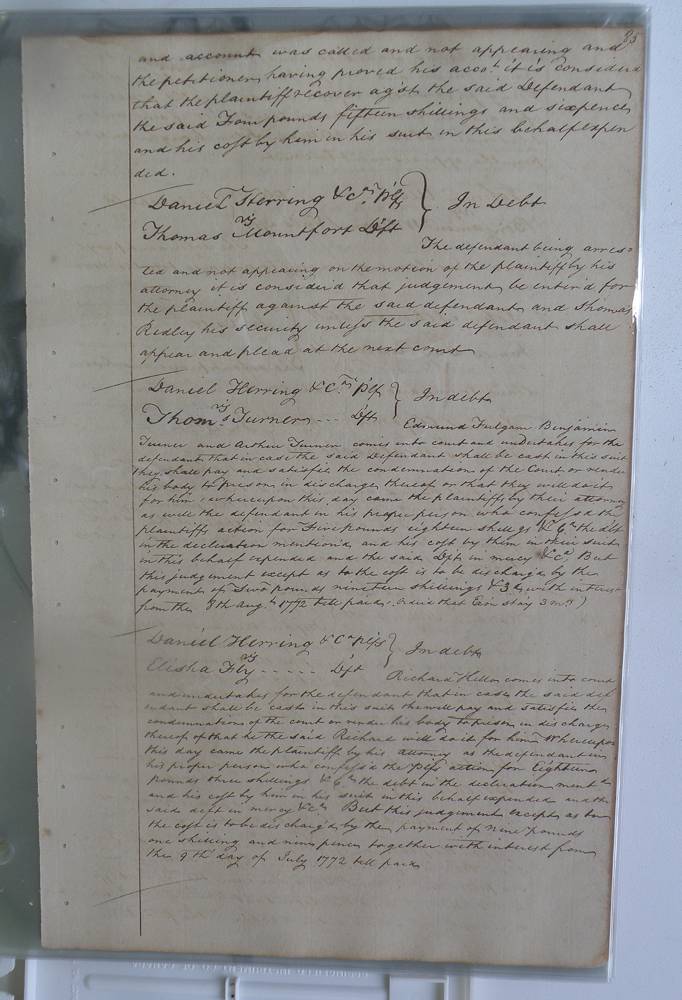 35
and account was called and not appearing and
the petitioner having proved his acco.t it is considered
that the plaintiff recover ag'st the said Defendant
the said Four pounds fifteen shillings and sixpence
and his cost by him in his suit in this behalf expen
ded.
Daniel Herring & C.o pl'fs } In Debt
vs
Thomas Mountfort D'ft
The defendant being arres-
ted and not appearing on the motion of the plaintiff by his
attorney it is consider'd that judgement be enter'd for
the plaintiff against the said defendant and Thomas
Ridley his security unless the said defendant shall
appear and plead at the next court
Daniel Herring & C.o pl'fs } In debt
vs
Thom.s Turner - - - D'ft
Edmund Fulgam Benjamin
Turner and Arthur Turner comes into court and undertakes for the
defendant that in case the said Defendant shall be cast in this suit
they shall pay and satisfie the condemnation of the Court or render
his body to prison in discharge thereof or that they will do it
for him, whereupon this day came the plaintiffs by their attorney
as well the defendant in his proper person who confess'd the
plaintiffs action for Five pounds eighteen shill'gs & 6.d the debt
in the declaration mention'd and his cost by them in their suit
in this behalf expended and the said D'ft in mercy &c.a But
this judgement except as to the cost is to be discharg'd by the
payment of Two pounds nineteen shillings & 3 with interest
from the 8th Aug.t 1772 till paid. Ord'd that Ex'on stay 3 m.s)
Daniel Herring & C.o pl'fs } In debt
vs
Elisha Fly - - - - - D'ft
Richard comes into court
and undertakes for the defendant that in case the said def
endant shall be cast in this suit he will pay and satisfie the
condemnation of the court or render his body to prison in discharge
thereof or that he the said Richard will do it for him Whereupon
this day came the plaintiff by his attorney as the defendant in
his proper person who confess'd the pl'fs action for Eighteen
pounds three shillings & 6.d the debt in the declaration ment'd
and his cost by him in his suit in this behalf expended and the
said deft in mercy &c.a But this judgement except as to
the cost is to be discharg'd by the payment of nine pounds
one shilling and nine pence together with interest from
the 9th day of July 1772 till paid